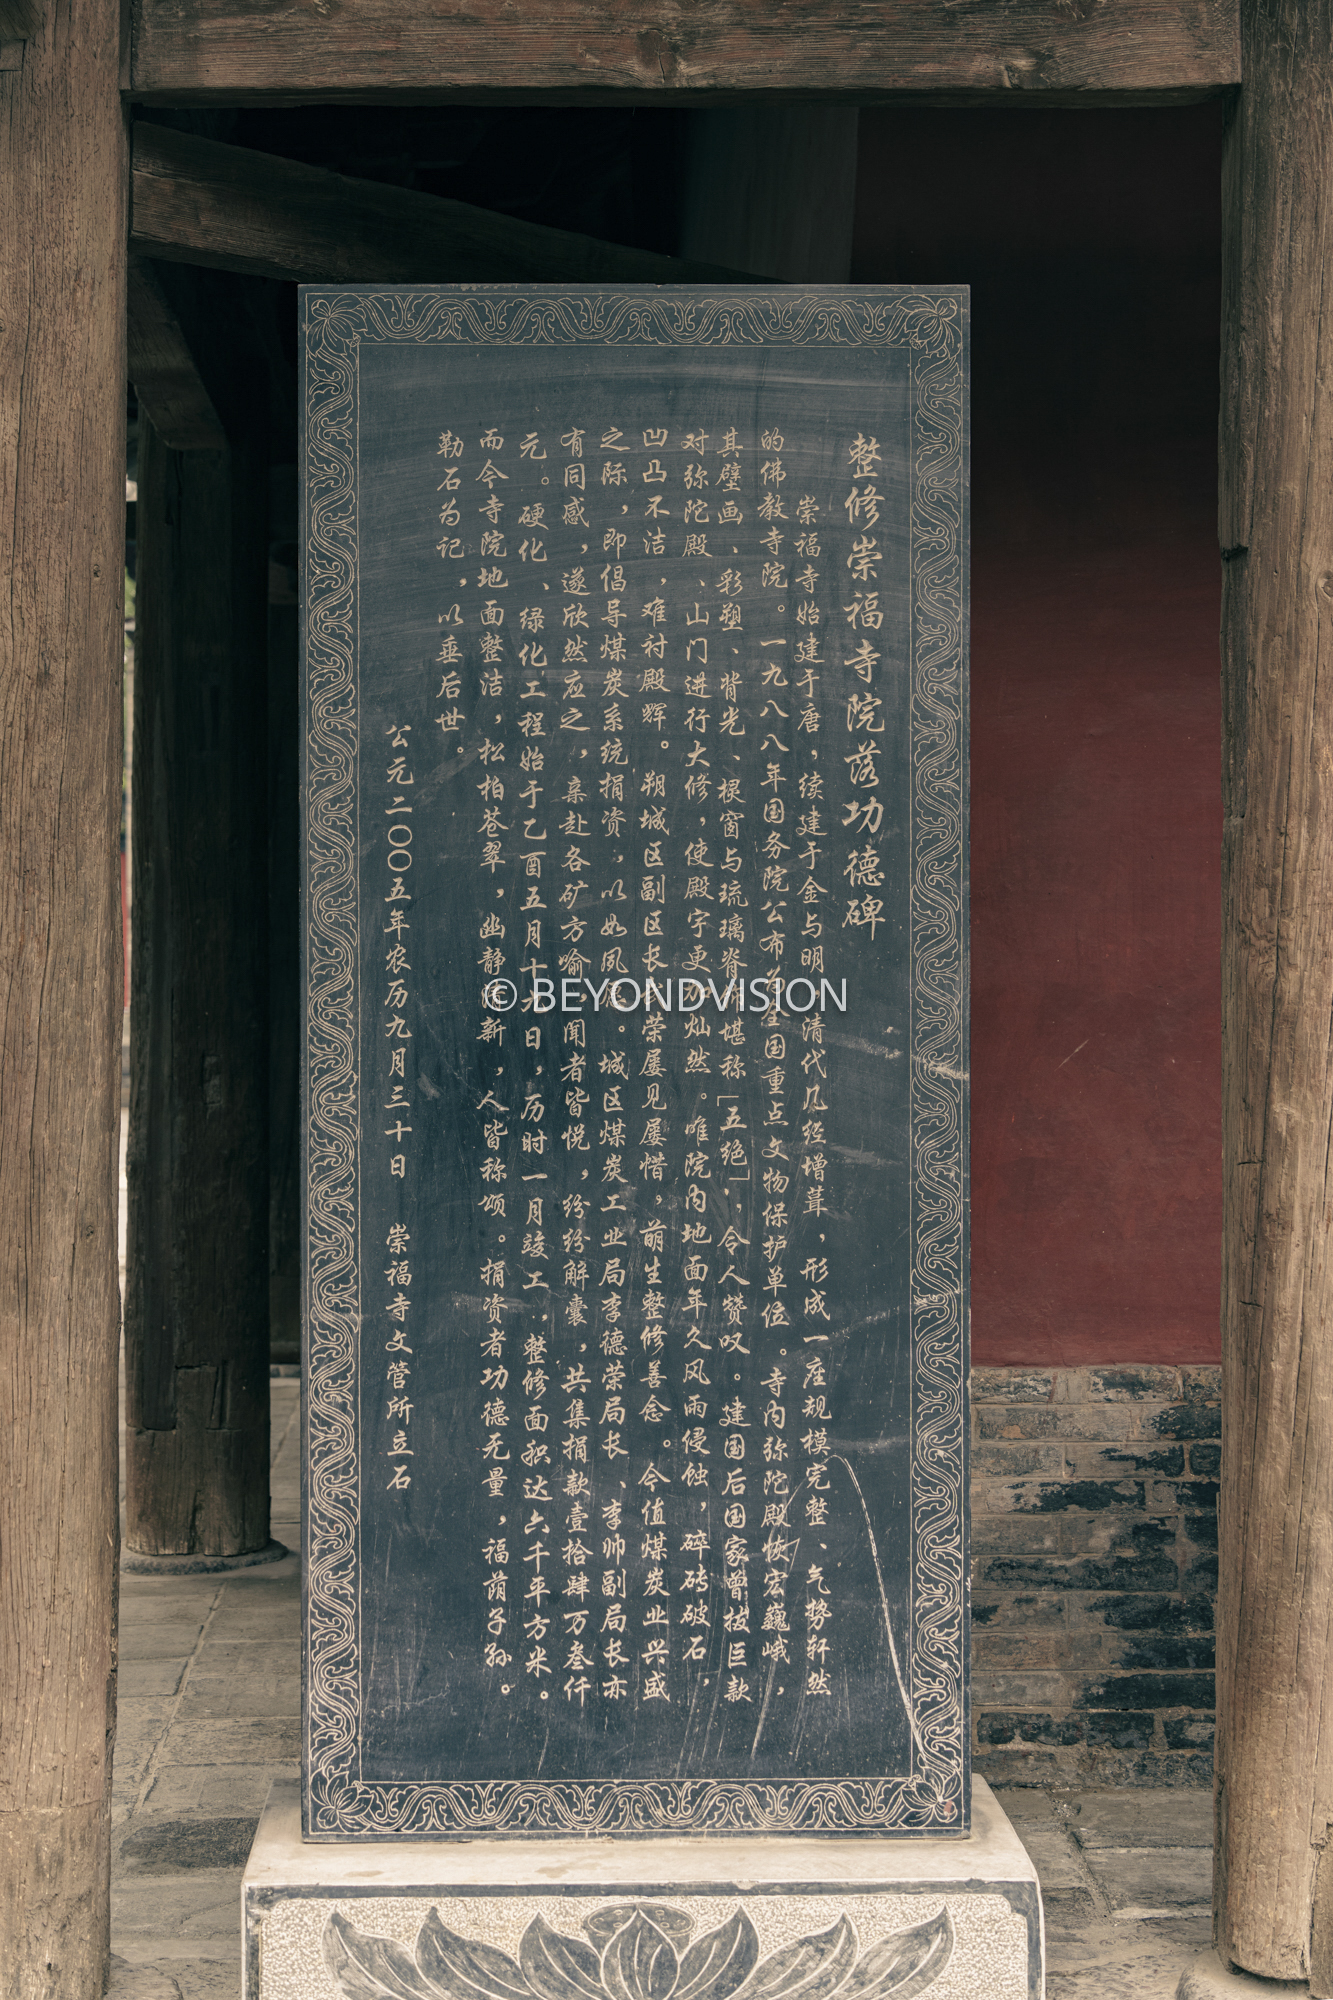 整修崇福寺院落功德碑
崇福寺始建于唐，续建于金与明，清代几经增葺，形成一座规模完整、气势轩然
的佛教寺院。一九八八年国务院公布为全国重点文物保护单位。寺内弥陀殿恢宏巍峨，
其壁画、彩塑、背光、棂窗与琉璃脊饰堪称「五绝」，令人赞叹。建国后国家曾拔巨款
对弥陀殿、山门进行大修，使殿宇更加灿然。唯院内地面年久风雨侵蚀，碎砖破石，
凹凸不洁，难衬殿辉。朔城区副区长 荣屡见屡惜，萌生整修善念。今值煤炭业兴盛
之际，即倡导煤炭系统捐资，以如夙愿。城区煤炭工业局李德荣局长、李帅副局长亦
有同感，遂欣然应之，亲赴各矿方喻，闻者皆悦，纷纷解囊，共集捐款壹拾肆万叁仟
元。硬化、绿化工程始于乙酉五月十九日，历时一月竣工，整修面积达六千平方米。
而今寺院地面整洁，松柏苍翠，幽静 新，人皆称颂。捐资者功德无量，福荫子孙。
勒石为记，以垂后世。
公元二〇〇五年农历九月三十日 崇福寺文管所立石
© BEYONDVISION